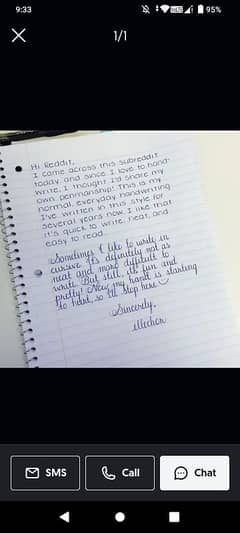 9:33
95%
1/1
Hi Reddit,
I came across this subreddit
today, and since I love to hand-
write, I thought I'd share my
own penmanship! This is my
normal, everyday handwriting
I've written in this style for
several years now. I like that
it's quick to write, neat, and
easy to read.
Sometimes I like to write in
cursive. It's definitely not as
neat and more difficult to
write. But still, it's fun and
pretty! Now my hand is starting
to hurt, so I'll stop here
Sincerely,
SMS
Call
Chat